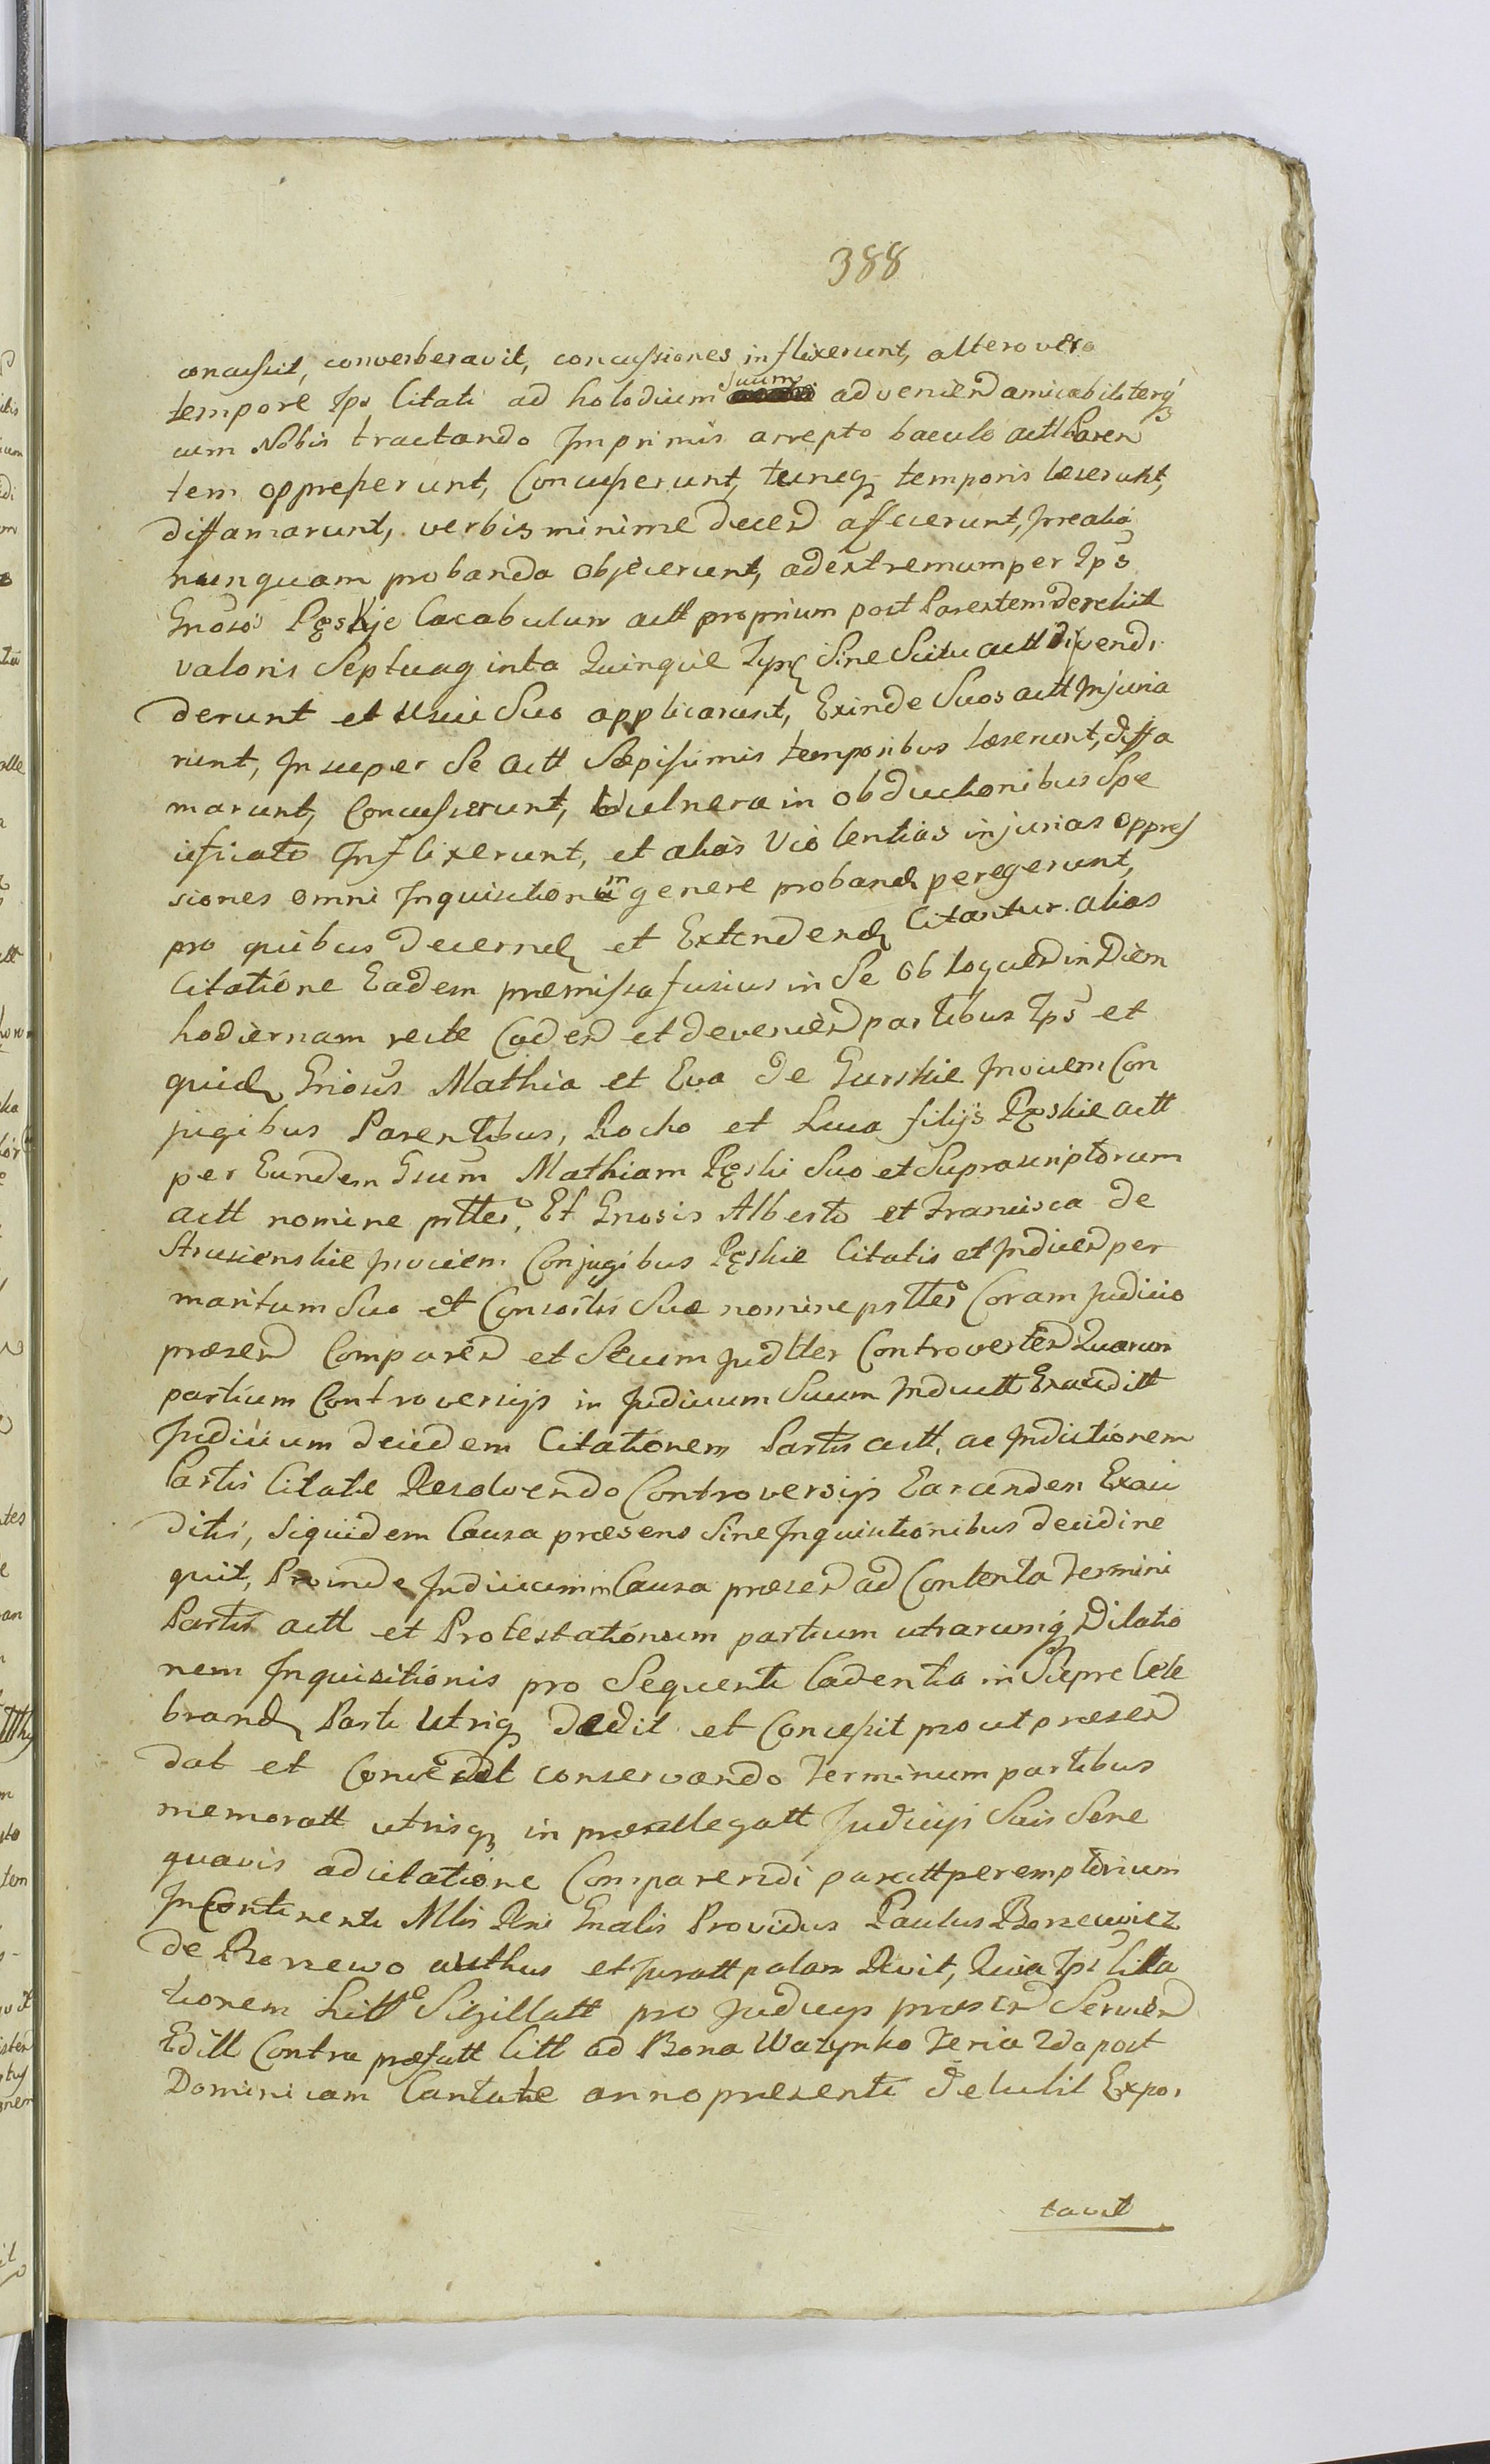 388
concussit, converberavit, concussiones inflixerunt, altero vero
tempore Ips Citati ad holodium suum advenien amicabiliterq
cum Nobis tractando Imprimis arrepto baculo actt Paren
tem oppresserunt, Concusserunt, tuncq temporis læserunt,
diffamarunt, verbis minime decen affecerunt,
nunquam probanda objecerunt, ad extremum per Ips
Gnoso Pęskie Cacabulum actt proprium post Parentem derelict
valoris Septuaginta Quinque Tynf Sine Scitu actt divendi
derunt et Usui Suo applicarunt, Exinde Suos actt Injuria
runt, Insuper Se actt Sæpissimis temporibus læserunt, diffa
marunt, Concusserunt, Vulnera in obductionibus Spe
cificato Inflixerunt, et alias Violentias injurias oppres
siones omni Inquisitionum genere proband peregerunt,
pro quibus decernen et Extendend Citantur. alias
Citatione Eadem præmissa fusius in Se obloquen in Diem
hodiernam recte Caden et devenien partibus Ips et
quid Gnosis Mathia et Eva de Gurskie Invicem Con
jugibus Parentibus, Rocho et Luca filijs Pęskie actt
per Eundem Gsum Mathiam Pęski Suo et Suprascriptorum
actt nomine prtter, Et Gnosis Alberto et Francisca de
Strusienskie Invicem Conjugibus Pęskie Citatis et Inducen per
maritum Suo et Consortis Suæ nomine prtter Coram Judicio
præsen Comparen et Secum Judtter Controverten Quarum
partium Controversijs in Judicium Suum Inductt Exauditt
Judicium deidem Citationem Partis actt, ac Inductionem
Partis Citatæ Resolvendo Controversijs Earunden Exau
ditis, Siquidem Causa præsens Sine Inquisitionibus decidi ne
quit, Proinde Judicium in Causa præsen ad Contenta Termini
Partis actt et Protestationum partium utrarumq Dilatio
nem Inquisitionis pro Sequenti Cadentia in Siepre Cele
brand Parti Utriq dedit et Concessit prout præsen
dat et Concedit conservando Terminum partibus
memoratt utrisq in præallegatt Judicijs Suis Sene
quavis adcitatione Comparendi paritt peremptorium
InContinenti Mlis Rni Gnalis Providus Paulus Borzewicz
de Borzewo autthus et Juratt palam Recit, Quia Ips Citta
tionem Litt Sigillatt pro Judicijs præsen Servien
Editt Contra præfatt Citt ad Bona Wazynko Feria 2da post
Dominicam Cantate anno præsenti detulit Expor
tavit